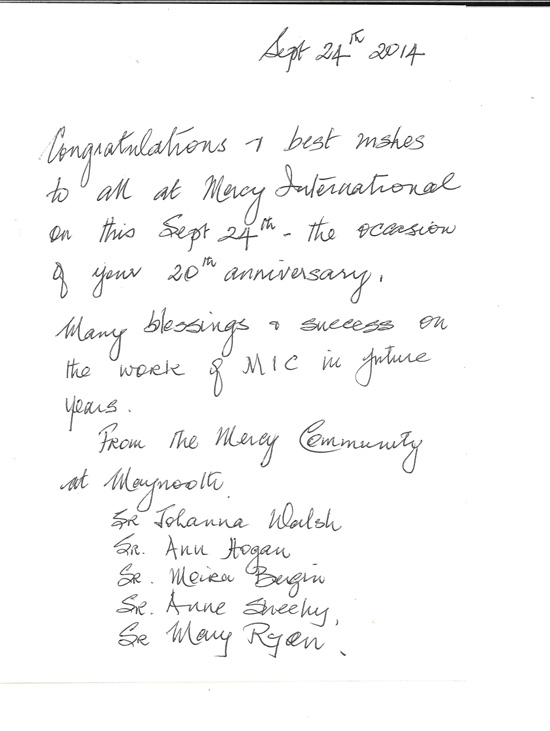 Sept 24th 2014
Congratulations & best wishes
to all at Mercy International
on this Sept 24th - the occasion
of your 20th anniversary.
Many blessings & success on
the work of MIC in future
years.
From the Mercy Community
at Maynooth.
Sr Johanna Walsh
Sr. Ann Hogan
Sr. Bergin
Sr. Anne Sheehy,
Sr Mary Ryan.